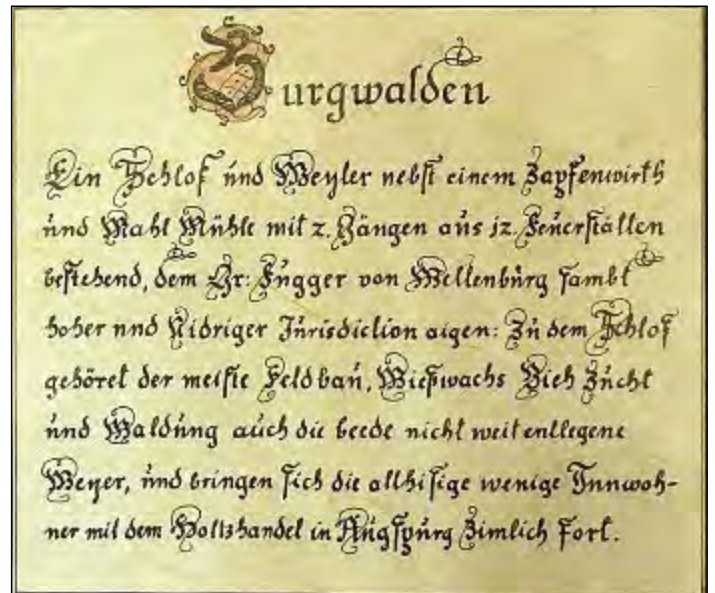 Burgwalden
Ein Schloß und Weyler nebst einem Zapfenwirth
und Mahl Mühle mit 2. Gängen aus 12. Feuerstätten
bestehend, dem Gr: Fugger von Wellenburg sambt
hoher und Nidriger Jurisdiction aigen: Zu dem Schloß
gehöret der meiste Feldbau, Wießwachs Vieh Zucht
und Waldung auch die beede nicht weit entlegene
Weyer, und bringen sich die allhisige wenige Innwoh-
ner mit dem Holtzhandel in Augspurg Zimlich fort.